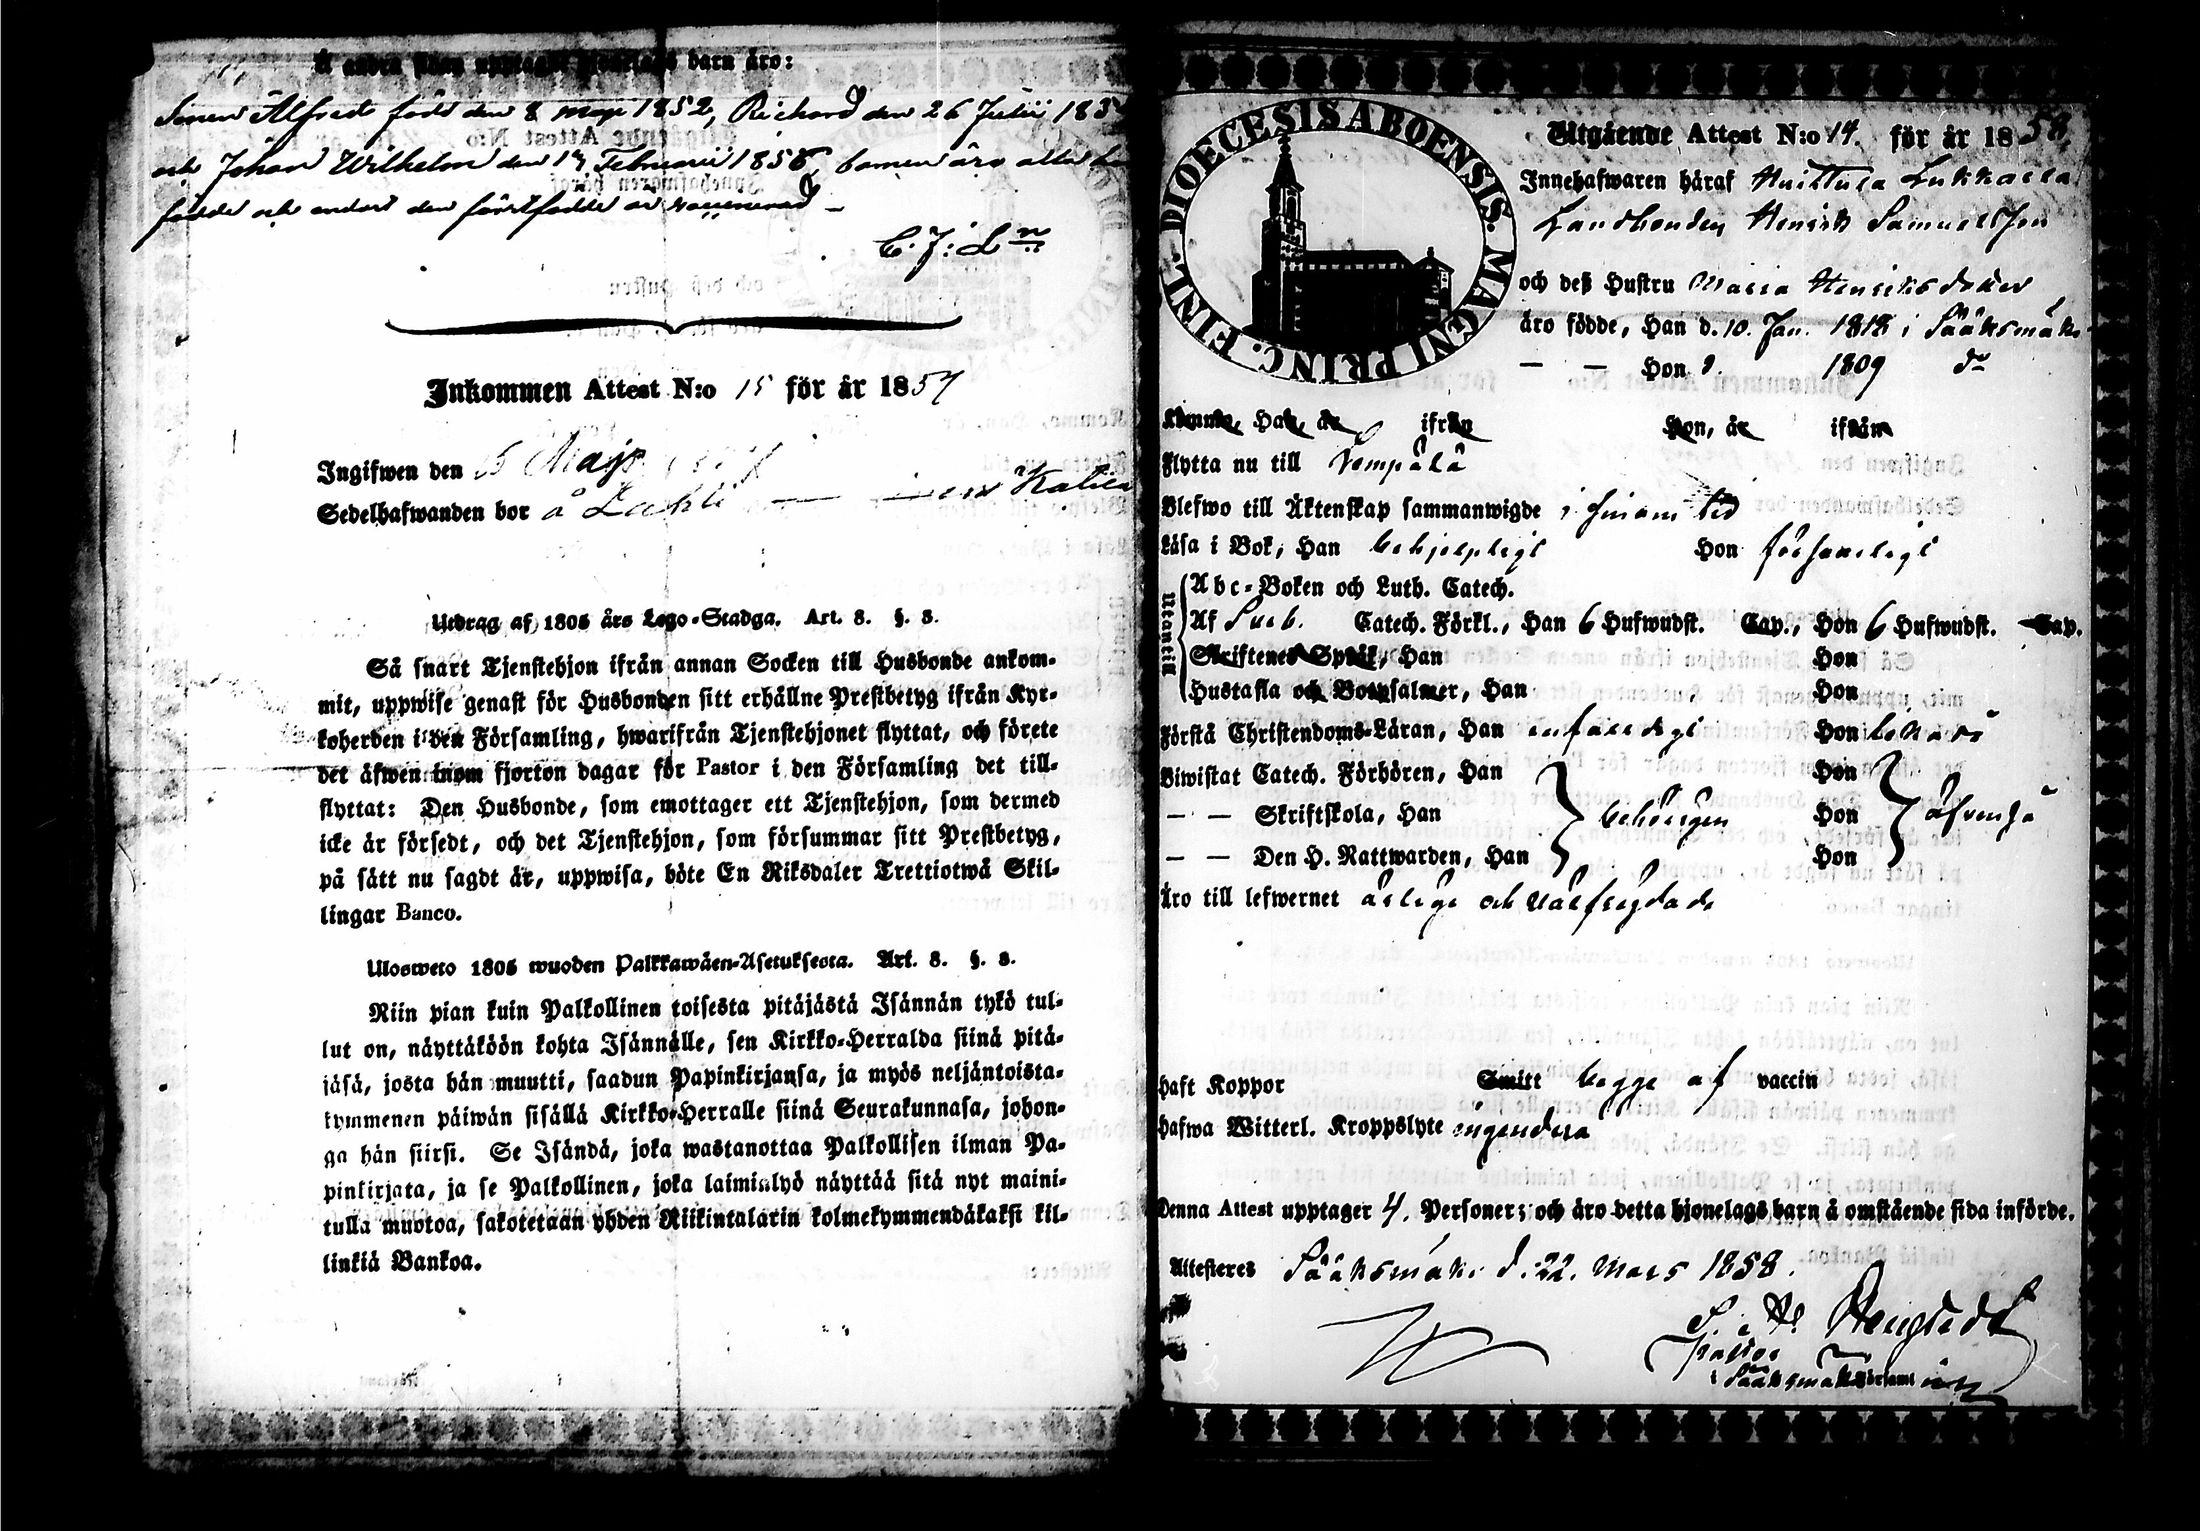 Å andra sidan upptagne hjonelags barn äro:
Sonen Alfred född den 8 Maji 1852, Richard den 26 Julii 185
och Johan Wilhelm den 17 Februarii 1856, barnen äro alla
födde och endast den förstfödde är vaccinerad —
C. J: Ln
Inkommen Attest N:o 15 för år 1857
Ingifwen den 15 Maji
Sedelhafwanden bor å Lahti
Utdrag af 1805 års Lego-Stadga. Art. 8. §. 8.
Så snart Tjenstehjon ifrån annan Socken till Husbonde ankom-
mit, uppwise genast för Husbonden sitt erhållne Prestbetyg ifrån Kyr-
koherden i den Församling, hwarifrån Tjenstehjonet flyttat, och förete
det äfwen inom fjorton dagar för Pastor i den Församling det till-
flyttat: Den Husbonde, som emottager ett Tjenstehjon, som dermed
icke är försedt, och det Tjenstehjon, som försummar sitt Prestbetyg,
på sätt nu sagdt är, uppwisa, böte En Riksdaler Trettiotwå Skil-
lingar Banco.
Ulosweto 1805 wuoden Palkkawäen-Asetuksesta. Art. 8. §. 8.
Niin pian kuin Palkollinen toisesta pitäjästä Isännän tykö tul-
lut on, näyttäköön kohta Isännälle, sen Kirkko-Herralda siinä pitä-
jäsä, josta hän muutti, saadun Papinkirjansa, ja myös neljäntoista-
kymmenen päiwän sisällä Kirkko-Herralle siinä Seurakunnasa, johon-
ga hän siirsi. Se Isändä, joka wastanottaa Palkollisen ilman Pa-
pinkirjata, ja se Palkollinen, joka laiminlyö näyttää sitä nyt maini-
tulla muotoa, sakotetaan yhden Riikintalarin kolmekymmendäkaksi kil-
linkiä Bankoa.
DIOECESIS ABOENSIS. MAGNI PRINC. FINL.
Utgående Attest N:o 14. för år 1858.
Innehafwaren häraf Huittula Lukkarla
Landbonden Henrik Samuelsson
och deß Hustru Maria Henriksdotter
äro födde, Han d. 10. Jan. 1818 i Sääksmäki
— — Hon d. 1809 do
Komne, Han, år ifrån Hon, år ifrån
Flytta nu till Lempälä
Blefwo till Äktenskap sammanwigde i sinom tid
Läsa i Bok, Han behjelpligt Hon försvarligt
Utantill
Abc-Boken och Luth. Catech.
Af Sveb. Catech. Förkl., Han 6 Hufwudst. Cap., Hon 6 Hufwudst. Cap.
Skriftenes Språk, Han Hon
Hustafla och Botpsalmer, Han Hon
Förstå Christendoms-Läran, Han enfaldigt Hon likaså
Biwistat Catech. Förhören, Han Hon
— — Skriftskola, Han behörigen Hon äfvenså
— — Den H. Nattwarden, Han Hon
Äro till lefwernet ärlige och välfrägdade
Haft Koppor Smitt begge af vaccin
Hafwa Witterl. Kroppslyte ingendera
Denna Attest upptager 4. Personer; och äro detta hjonelags barn å omstående sida införde.
Attesteres Sääksmäki d. 22. Mars 1858.
Pastor
i Sääksmäki församl